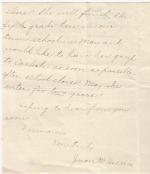 there. She will finish the
fifth grade here in our
town school in May and
would like to have her go
to Carlisle as soon as possible
after school closes. May she
enter for two years?
Hoping to hear from you
soon
I remain
Yours truly